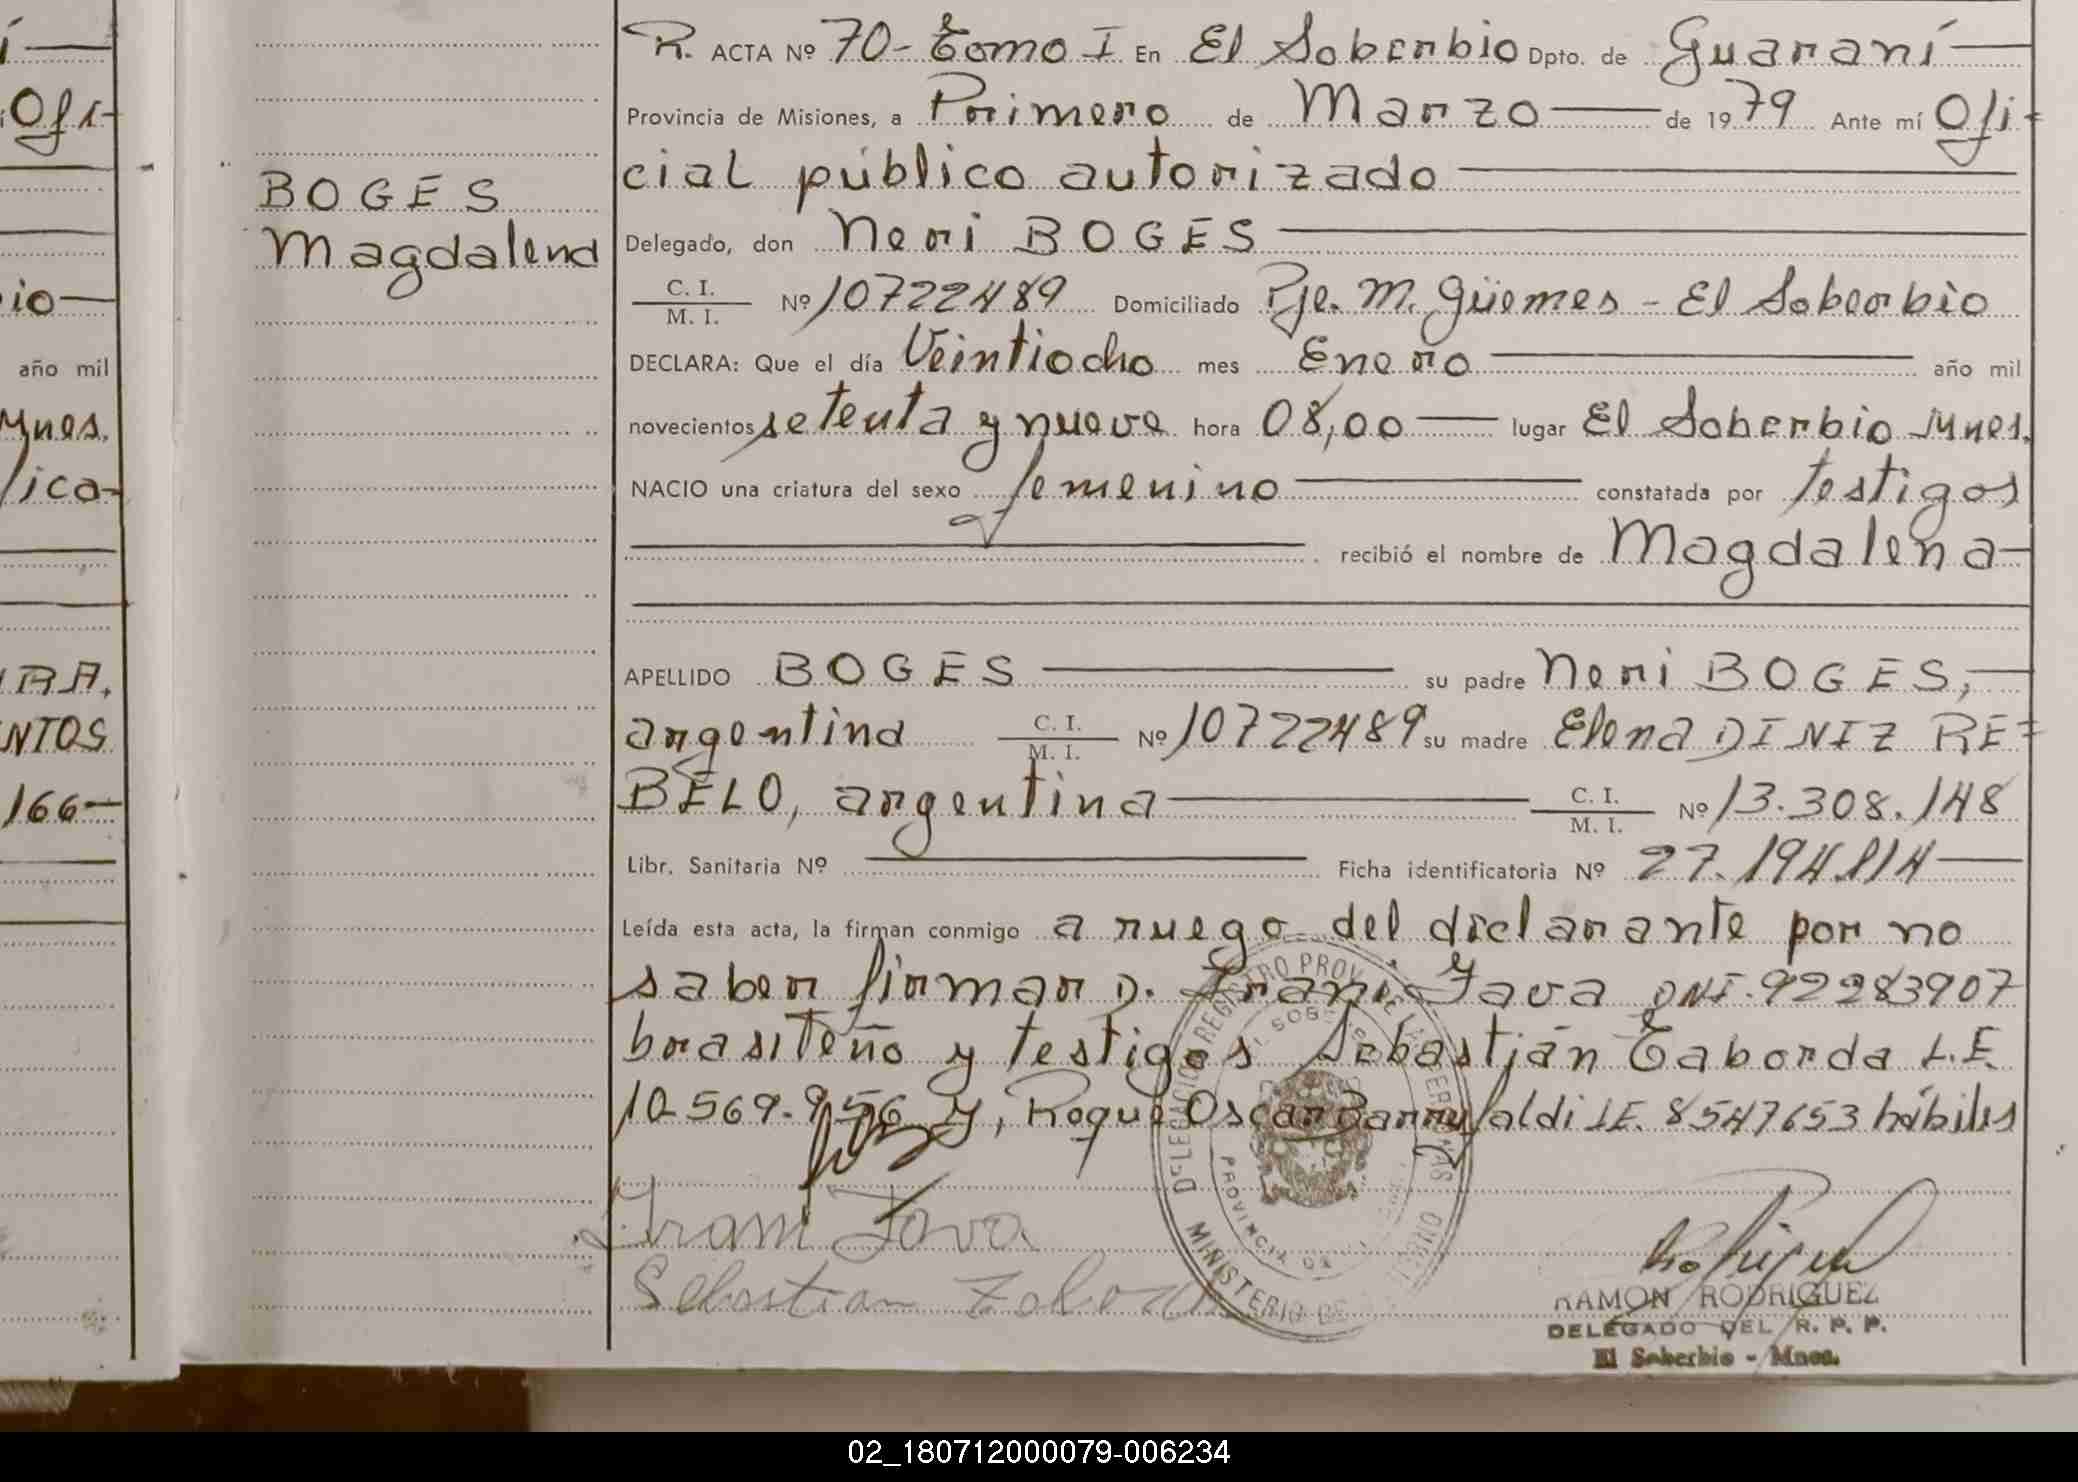 í
Ofi-
io
año mil
Mnes.
lica-
RA,
NTOS
166
BOGES
Magdalena
R. ACTA Nº 70- Tomo I En El Soberbio Dpto. de Guaraní
Provincia de Misiones, a Primero de Marzo de 1979 Ante mí Ofi-
cial público autorizado
Delegado, don Neri BOGES
C. I.
M. I. Nº 10722489 Domiciliado Pje. M. Güemes - El Soberbio
DECLARA: Que el día Veintiocho mes Enero año mil
novecientos setenta y nueve hora 08,00 lugar El Soberbio Mnes.
NACIO una criatura del sexo femenino constatada por testigos
recibió el nombre de Magdalena
APELLIDO BOGES su padre Neri BOGES,
argentino C. I. M. I. Nº 10722489 su madre Elena DINIZ RE=
BELO, argentina C. I. M. I. Nº 13.308.148
Libr. Sanitaria Nº Ficha identificatoria Nº 27.194.114
Leída esta acta, la firman conmigo a ruego del declarante por no
saber firmar D. Irani Fava DNI. 92283907
brasileño y testigos Sebastián Taborda L.E.
10.569.956 y, Roque Oscar LE. 8547653 hábiles
Irani Fava
Sebastian
DELEGACION REGISTRO PROV. DE LAS PERSONAS
MINISTERIO DE
PROVINCIA DE
RAMON RODRIGUEZ
DELEGADO DEL R. P. P.
El Soberbio - Mnes.
02_180712000079-006234